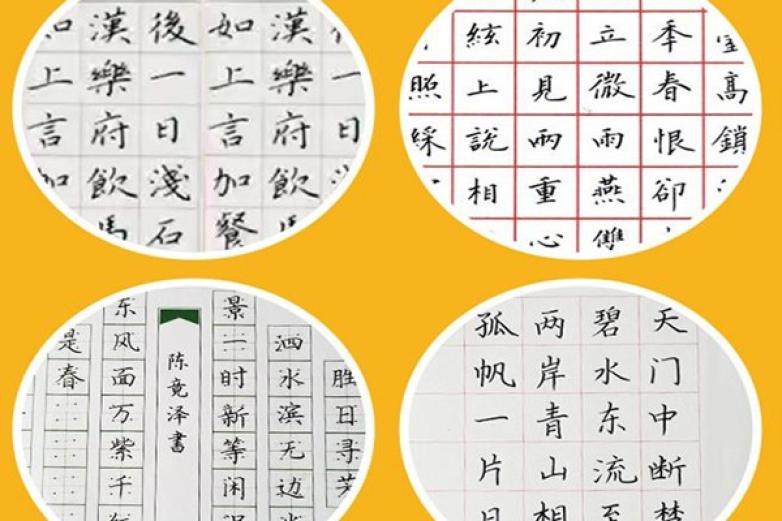 一日
漢樂府飲馬
如上言加餐
後一日淺石
漢樂府飲馬
上言加
高鎖
季春恨卻
立微雨燕雙
初見兩重心
絃上說相
照綵
胜日寻芳
泗水滨无边
景一时新等闲识
陈竞泽書
东风面万紫千红
是春
天门中断楚
碧水东流至
两岸青山相
孤帆一片日